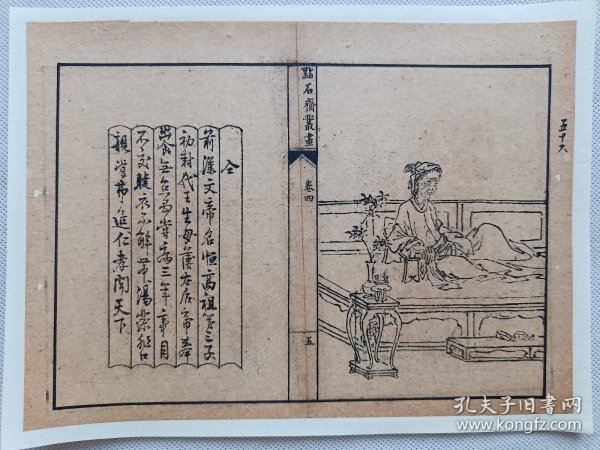 五十六
點石齋叢畫
卷四
五
仝
前漢文帝名恒高祖第三子
初封代王生母薄太后帝奉
養無怠母常病三年帝目
不交睫衣不解帶湯藥非口
親嘗弗進仁孝聞天下
孔夫子旧書网
www.kongfz.com